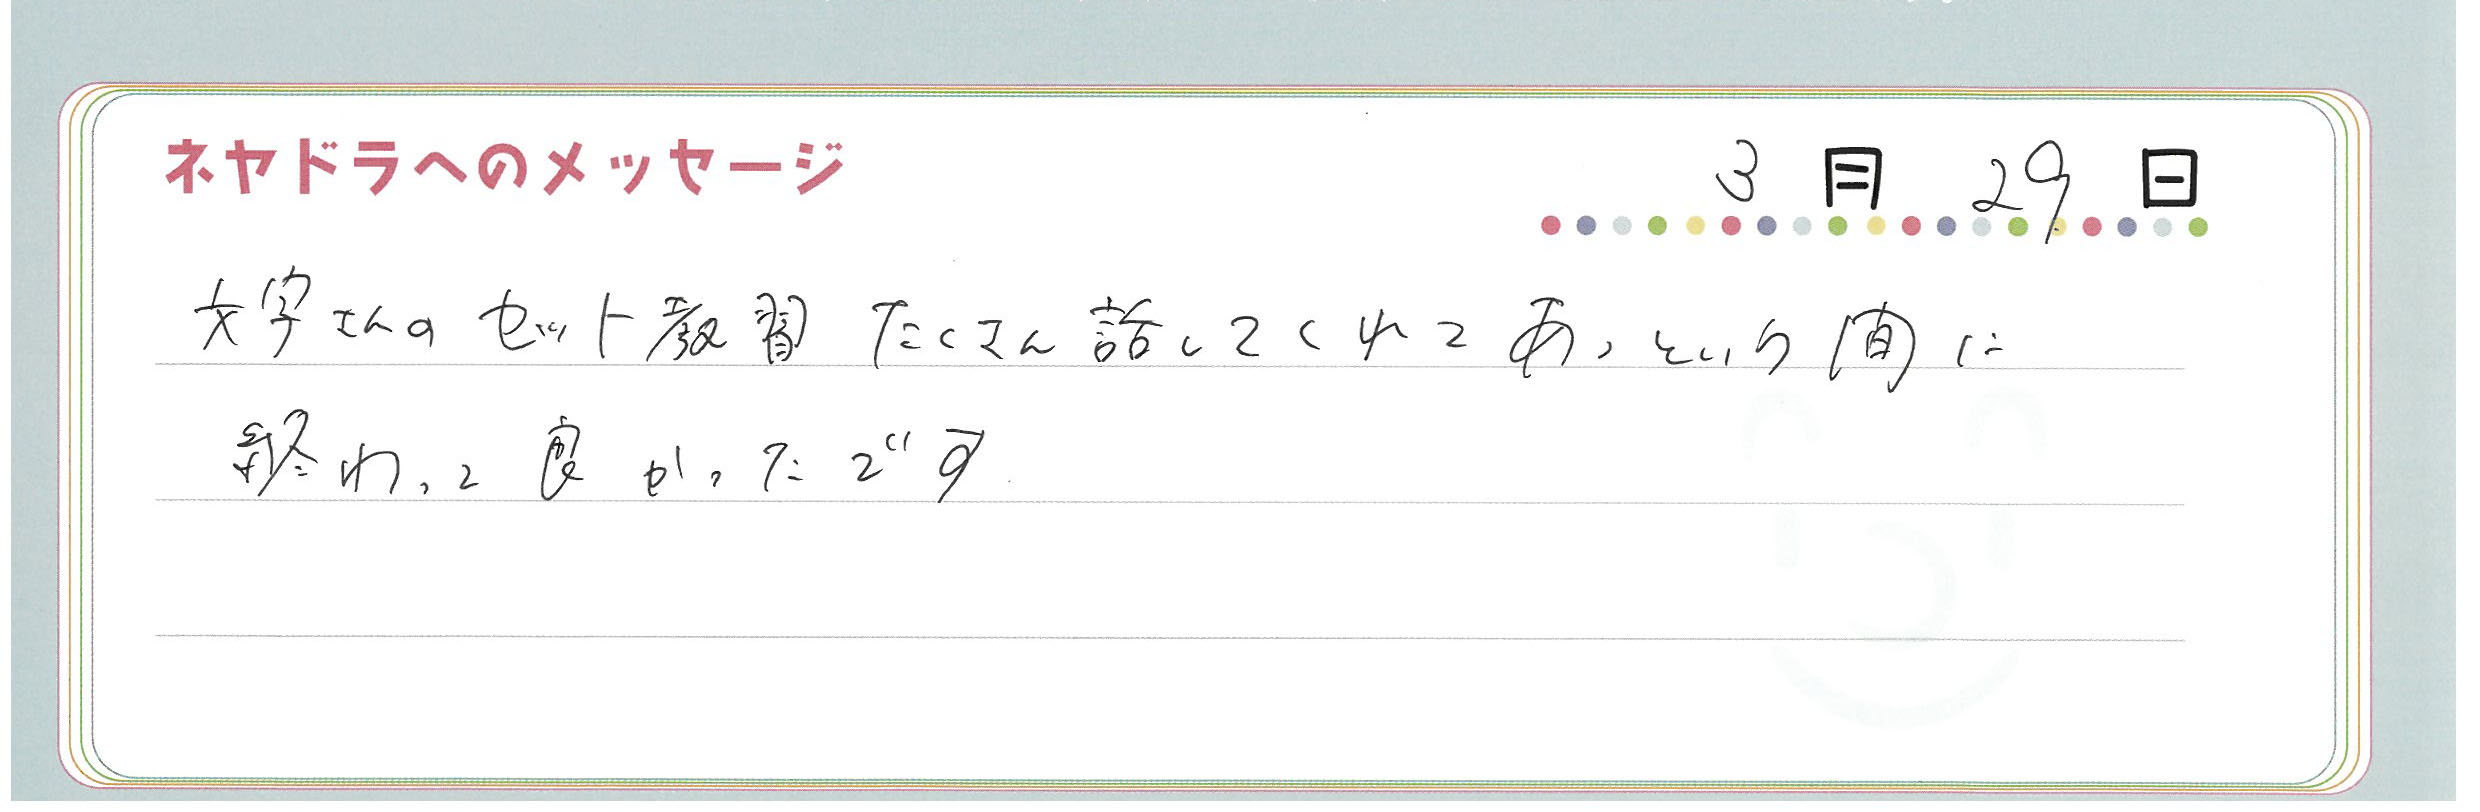 ネヤドラへのメッセージ
3月29日
文字さんのセット教習たくさん話してくれてあっという間に
終わって良かったです